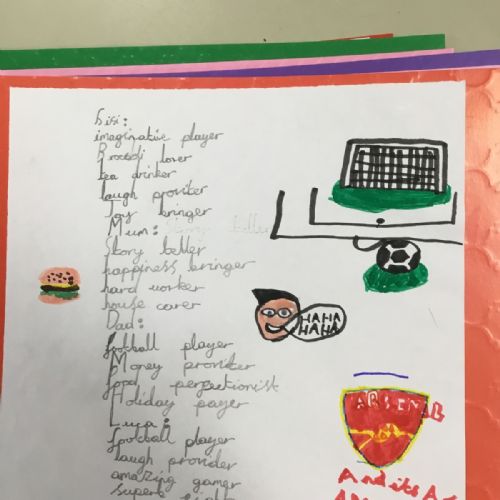 Sisi:
imaginative player
Broccoli lover
tea drinker
laugh provider
Joy bringer
Mum:
Story teller
happiness bringer
hard worker
house carer
Dad:
football player
Money provider
food perfectionist
Holiday payer
Luca:
football player
laugh provider
amazing gamer
superb
HAHA
HAHA
ARSENAL
And its